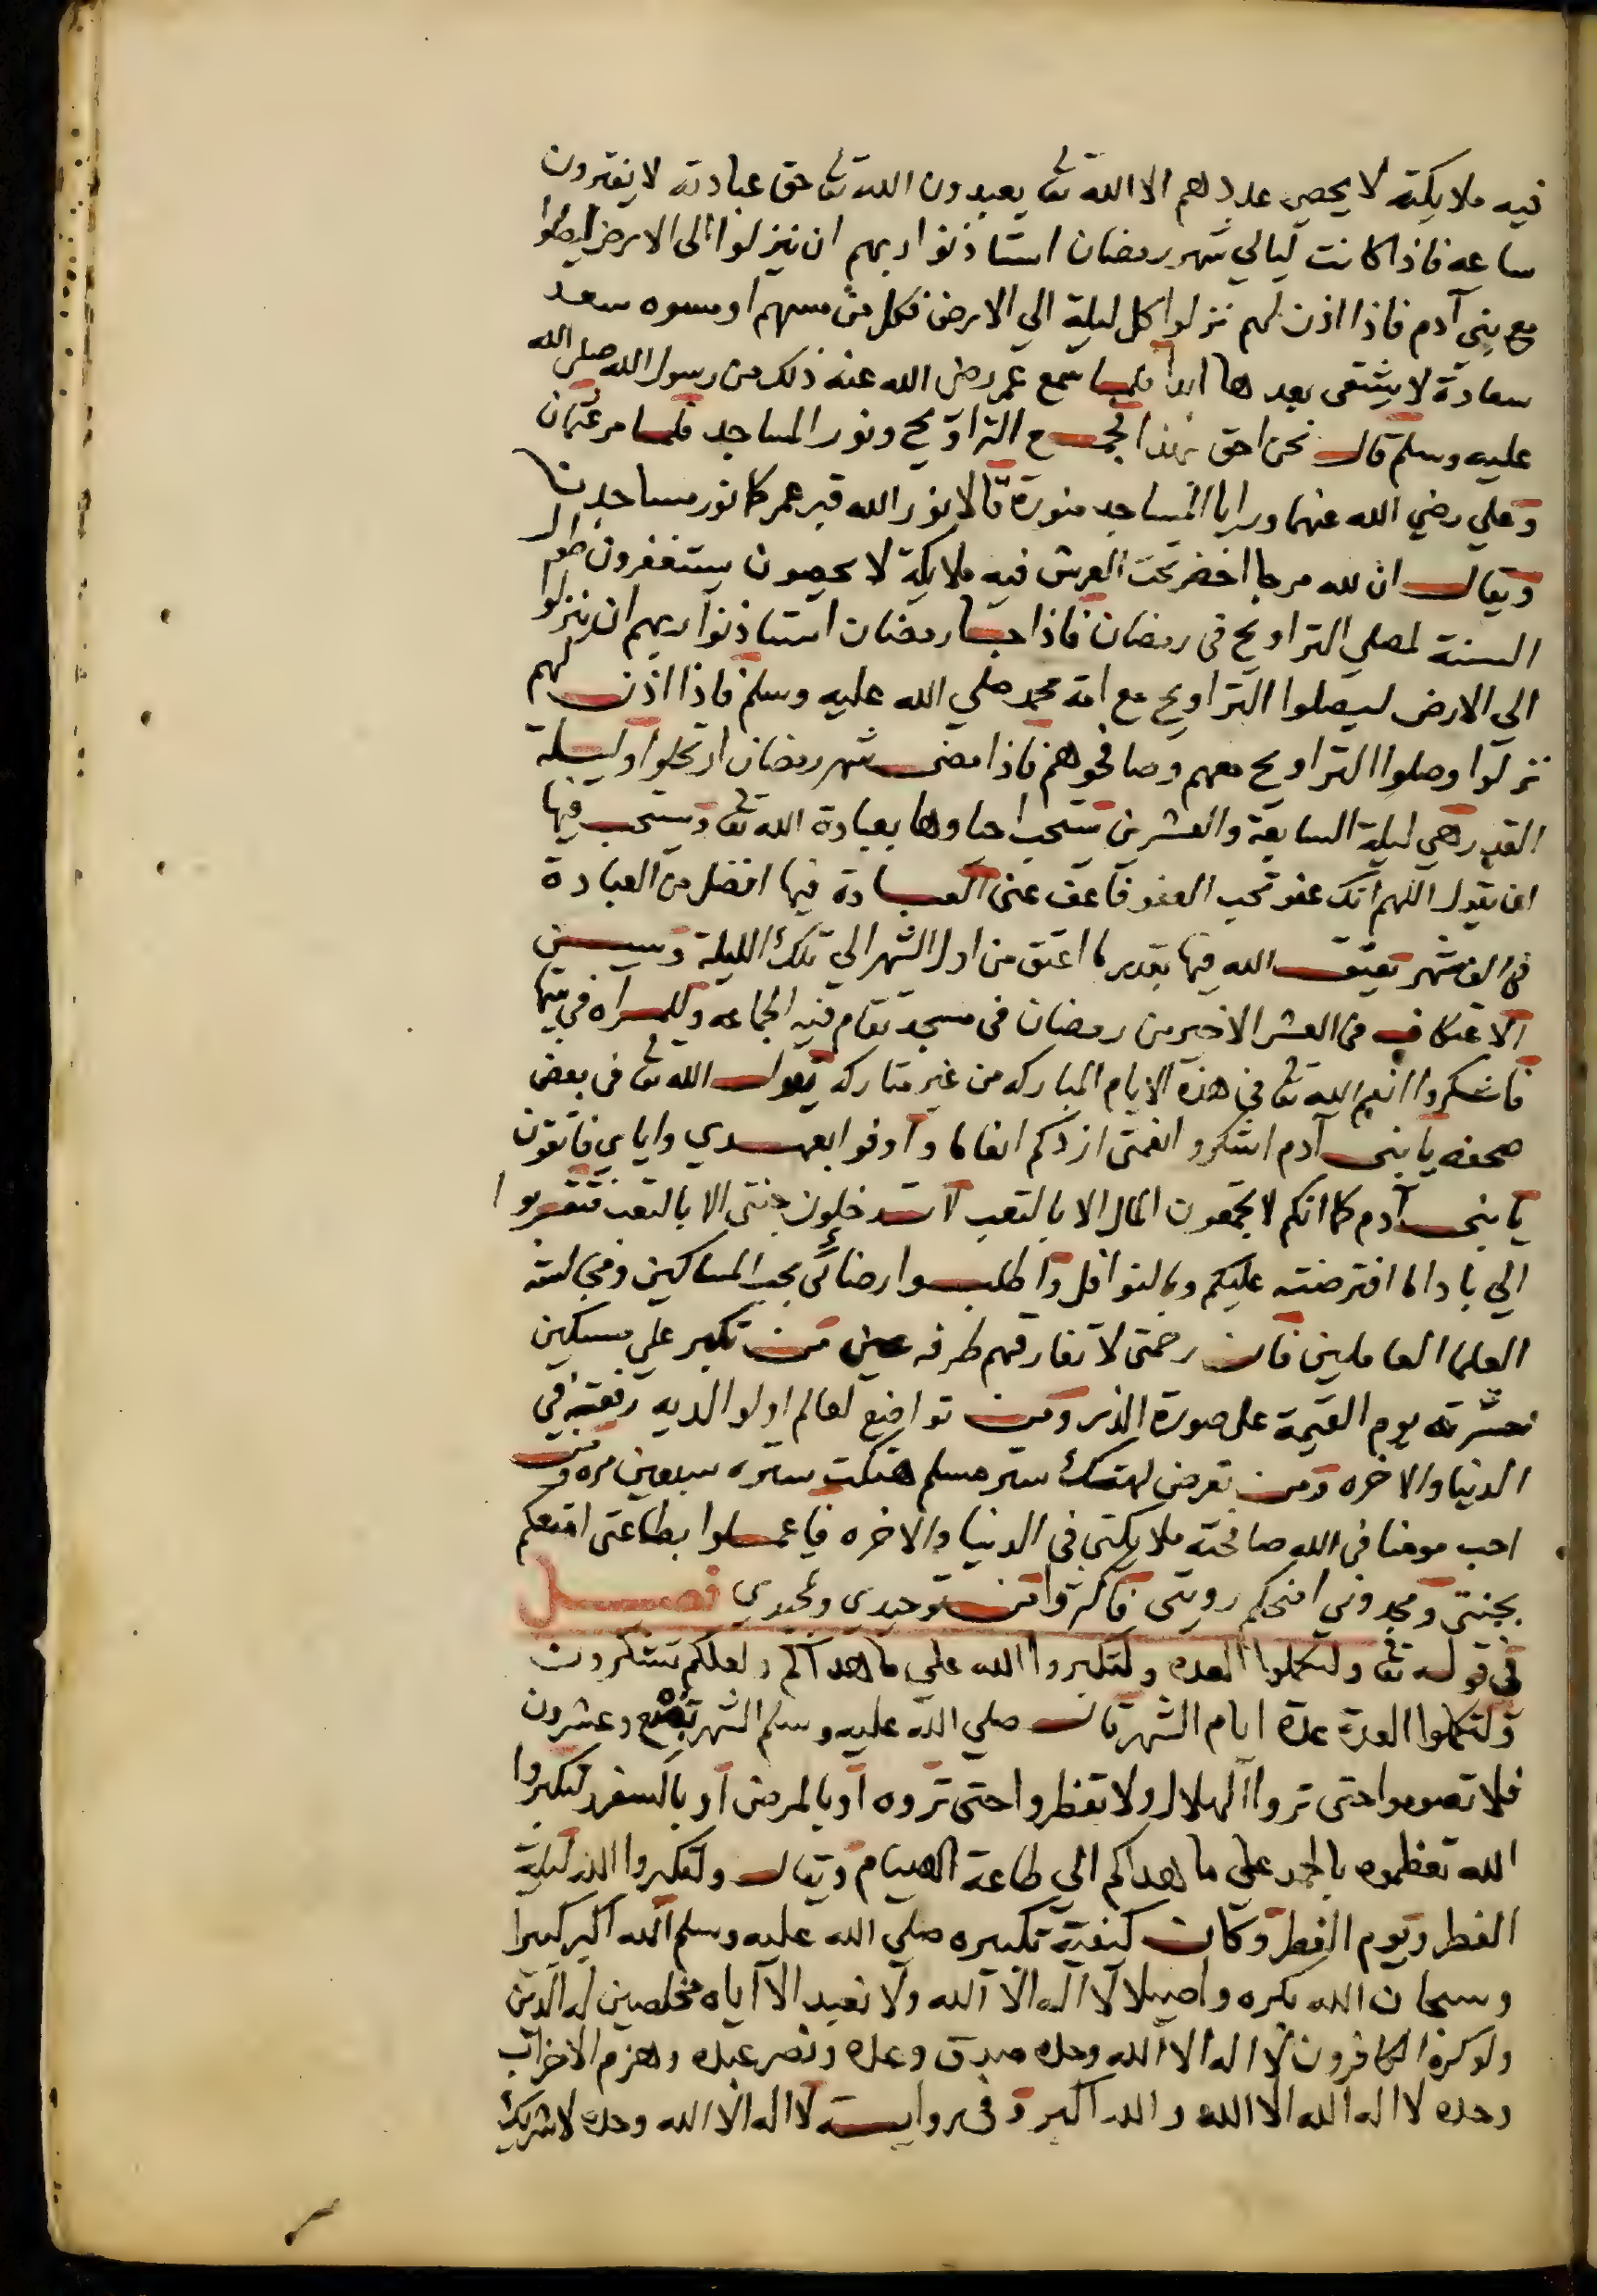 فيه ملايكة لا يحصي عددهم الا الله تعا يعبدون الله تعا حق عبادته لا يفترون
ساعه فاذا كانت ليالي شهر رمضان استاذنوا ربهم ان ينزلوا الى الارض ليصلوا
مع بني آدم فاذا اذن لهم نزلوا كل ليلة الي الارض فكل من مسهم او مسوه سعد
سعادة لا يشقى بعدها ابدا فلما سمع عمر رضي الله عنه ذلك من رسول الله صلى الله
عليه وسلم قال نحن احق بهذا فجمع التراويح ونور المساجد فلما مر عثمان
وعلي رضي الله عنهما ورايا المساجد منورة قالا نور الله قبر عمر كما نور مساجدنا
ويقال ان لله مرجا اخضر تحت العرش فيه ملايكة لا يحصون يستغفرون طول
السنة لمصلي التراويح في رمضان فاذا جا رمضان استاذنوا ربهم ان ينزلوا
الي الارض ليصلوا التراويح مع امة محمد صلي الله عليه وسلم فاذا اذن لهم
نزلوا وصلوا التراويح معهم وصافحوهم فاذا مضى شهر رمضان ارتحلوا وليلة
القدر هي ليلة السابعة والعشرين يستحب احياوها بعبادة الله تعا ويستحب فيها
ان يقول اللهم انك عفو تحب العفو فاعف عني العبادة فيها افضل من العبادة
في الف شهر يعتق الله فيها بقدر ما اعتق من اول الشهر الي تلك الليلة ويسن
الاعتكاف في العشر الاخير من رمضان في مسجد تقام فيه الجماعه وللمراه في بيتها
فاشكروا انعم الله تعا في هذه الايام المباركه من غير متاركه يقول الله تعا في بعض
صحفه يا بني آدم اشكروا نعمتى ازدكم انعاما واوفوا بعهدي واياي فاتقون
يا بني آدم كما انكم لا تجمعون المال الا بالتعب لا تدخلون جنتي الا بالتعب فتقربوا
الي باداما افترضته عليكم وبالنوافل واطلبوا رضائي بحب المساكين ومجالسة
العلما العاملين فان رحمتى لا تفارقهم طرفه عين من تكبر علي مسكين
حشرته يوم القيمة على صورة الذر ومن تواضع لعالم او لوالديه رفعته في
الدنيا والاخره ومن تعرض لهتك ستر مسلم هتكت ستره سبعين مره ومن
احب مومنا في الله صافحته ملايكتى في الدنيا والاخره فاعملوا بطاعتى امتعكم
بجنتى ومجدوني امنحكم رويتى فاكثروا من توحيدي وتمجيدي فصل
في قوله تعا ولتكملوا العده ولتكبروا الله علي ما هداكم ولعلكم تشكرون
ولتكملوا العدة عدة ايام الشهر قال صلي الله عليه وسلم الشهر تسع وعشرون
فلا تصوموا حتى تروا الهلال ولا تفطروا حتى تروه او بالمرض او بالسفر ولتكبروا
الله تعظموه بالحمد علي ما هداكم الي طاعة الصيام ويقال ولتكبروا الله ليلة
الفطر ويوم الفطر وكان كيفية تكبيره صلي الله عليه وسلم الله اكبر كبيرا
وسبحان الله بكره واصيلا لا اله الا الله ولا نعبد الا اياه مخلصين له الدين
ولو كره الكافرون لا اله الا الله وحده صدق وعده ونصر عبده وهزم الاحزاب
وحده لا اله الله الا الله والله اكبر وفي رواية لا اله الا الله وحده لا شريك